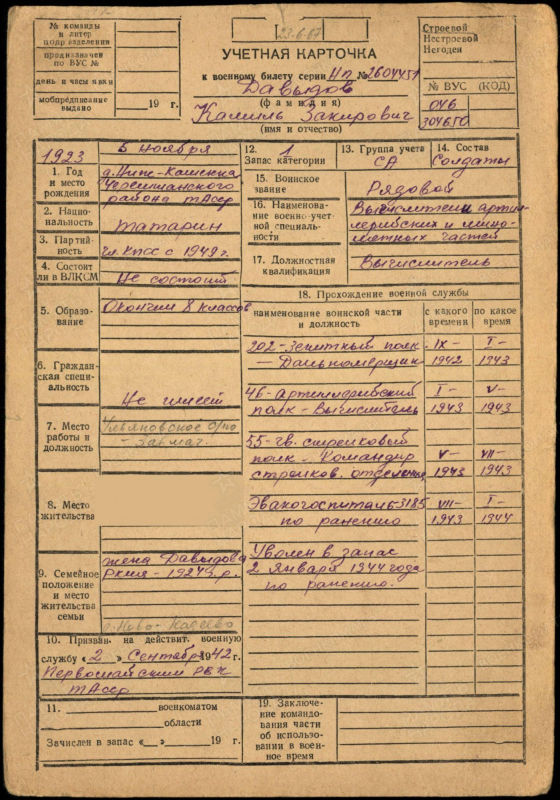 № команды
и литер
подразделения
предназначен
по ВУС №
день и часы явки
мобпредписание
выдано
19 г.
23.6.67
УЧЕТНАЯ КАРТОЧКА
к военному билету серии НП № 2604451
Давыдов
(фамилия)
Камиль Закирович
(имя и отчество)
Строевой
Нестроевой
Негоден
№ ВУС (КОД)
046
304650
1923
5 ноября
1. Год
и место
рождения
Черемшанского
района ТАССР
2. Нацио-
нальность
татарин
3. Партий-
ность
чл. КПСС с 1949 г.
4. Состоит
ли в ВЛКСМ
Не состоит
5. Образо-
вание
Окончил 8 классов
6. Граждан-
ская специ-
альность
Не имеет
7. Место
работы и
должность
8. Место
жительства
9. Семейное
положение
и место
жительства
семьи
жена Давыдова
10. Призван на действит. военную
службу «2» Сентября 1942 г.
Первомайским РВК
ТАССР
11. военкоматом
области
Зачислен в запас «__» 19 г.
12. 1
Запас категории
13. Группа учета
СА
14. Состав
Солдаты
15. Воинское
звание
Рядовой
16. Наименование
военно-учет-
ной специаль-
ности
Вычислители артил-
лерийских и мино-
метных частей
17. Должностная
квалификация
Вычислитель
18. Прохождение военной службы
наименование воинской части
и должность
с какого
времени
по какое
время
202-зенитный полк
— Дальномерщик
IX-
1942
I-
1943
46-артиллерийский
полк - Вычислитель
I-
1943
V-
1943
55-гв. стрелковый
полк - Командир
стрелков. отделения
V-
1943
VII-
1943
Эвакогоспиталь-3185
по ранению
VII-
1943
I-
1944
Уволен в запас
2 января 1944 года
по ранению.
19. Заключение
командования
части об
использо-
вании в воен-
ное время